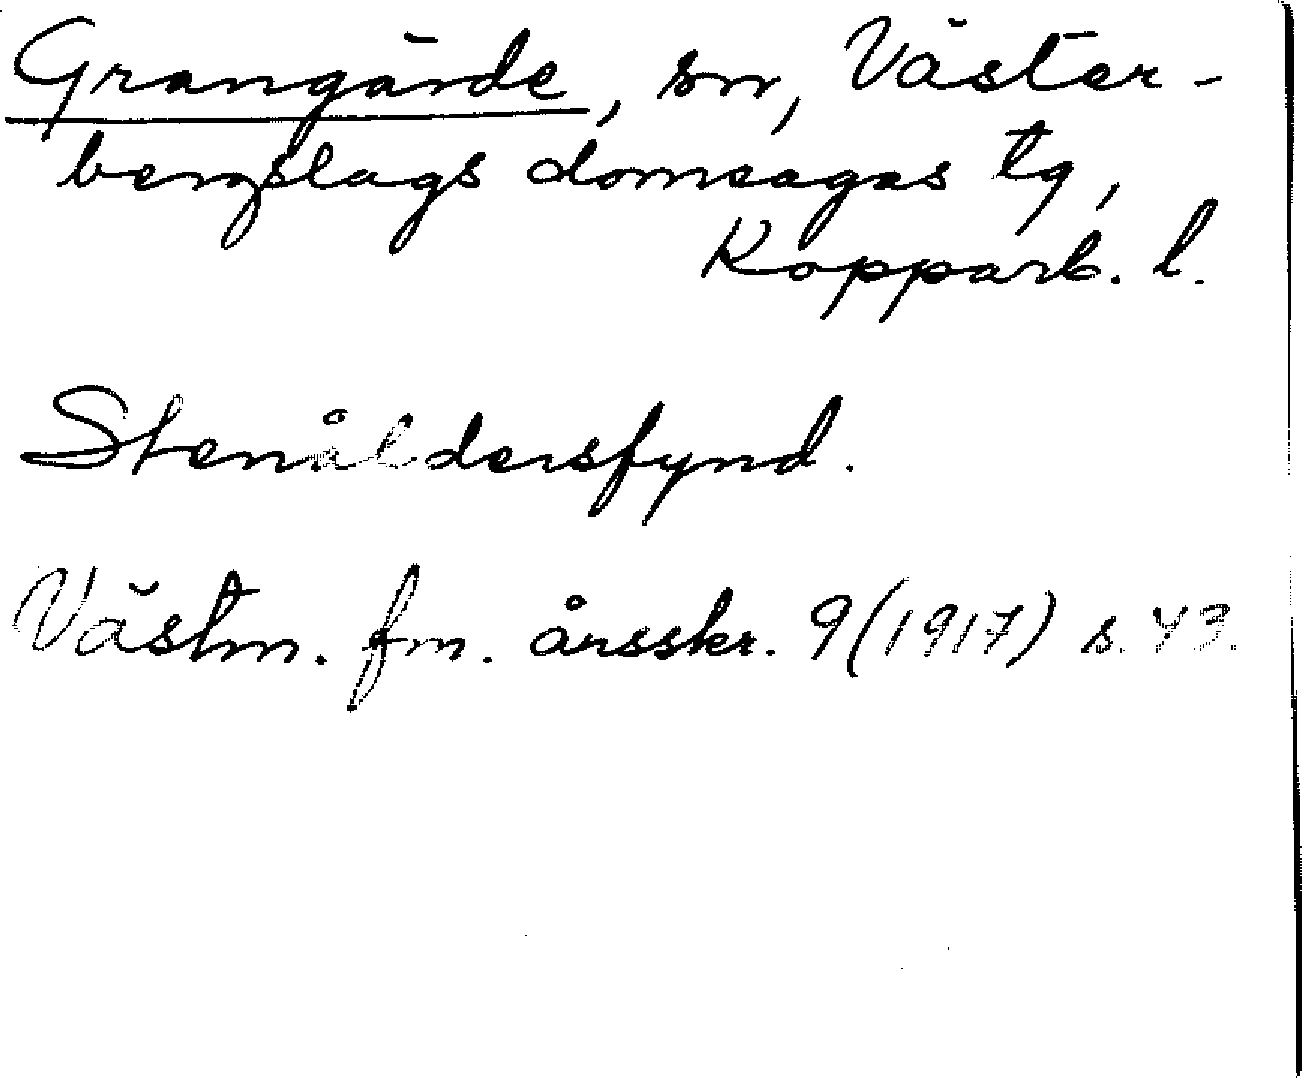 Grangärde, sn, Väster-
bergslags domsagas tg,
Kopparb. l.
Stenåldersfynd.
Västm. fm. årsskr. 9 (1917) s. 43.